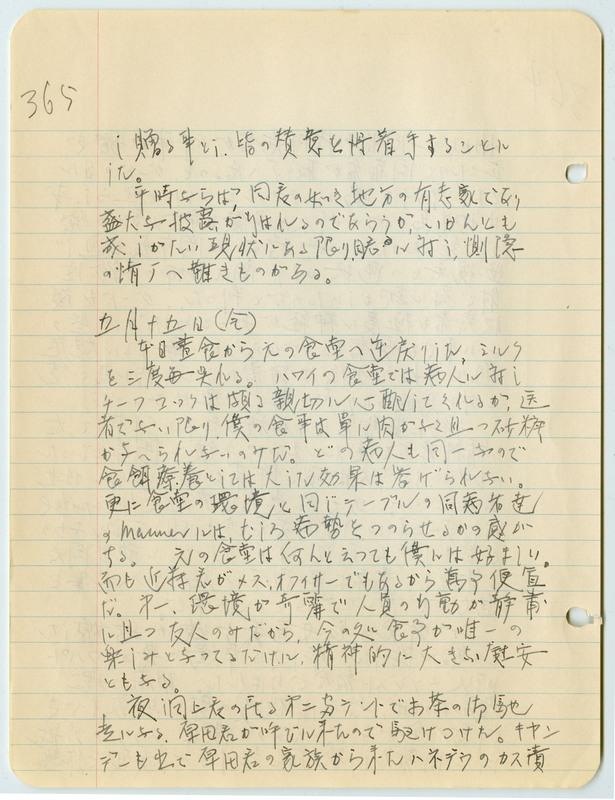 365
し贈る事とし、皆の賛意を得着手することに
した。
平時ならば、同君の如き地方の有志家であり
盛大な披露が行はれるのであらうが、いかんとも
成しがたい現状にある限り、君に対し、惻隠
の情了へ難きものがある。
五月十五日(金)
本日昼食から元の食堂へ逆戻りした、ミルク
を三度毎呉れる。ハワイの食堂では病人に対し
チーフコックは頗る親切に心配してくれるが、医
者でない限り、僕の食事は単に肉がなく且つ砂糖
が与へられないのみだ。どの病人も同一なので
食餌療養としては大した効果は挙げられない。
更に食堂の環境と同じテーブルの同病者達
のmannerには、むしろ病勢をつのらせるかの感が
ある。元の食堂は何んと云つても僕には好ましい。
而も近藤君がメス、オフィサーでもあるから万事便宜
だ。第一、環境が奇麗で人員の行動が静粛
に且つ友人のみだから、今の処食事が唯一の
楽しみとなつてるだけに、精神的に大きな慰安
ともなる。
夜、洞上君の居る第二カテントでお茶の御馳
走になる、原田君が呼びに来たので駆けつけた。キャン
デーも出で原田君の家族から来たハネデウのカス漬